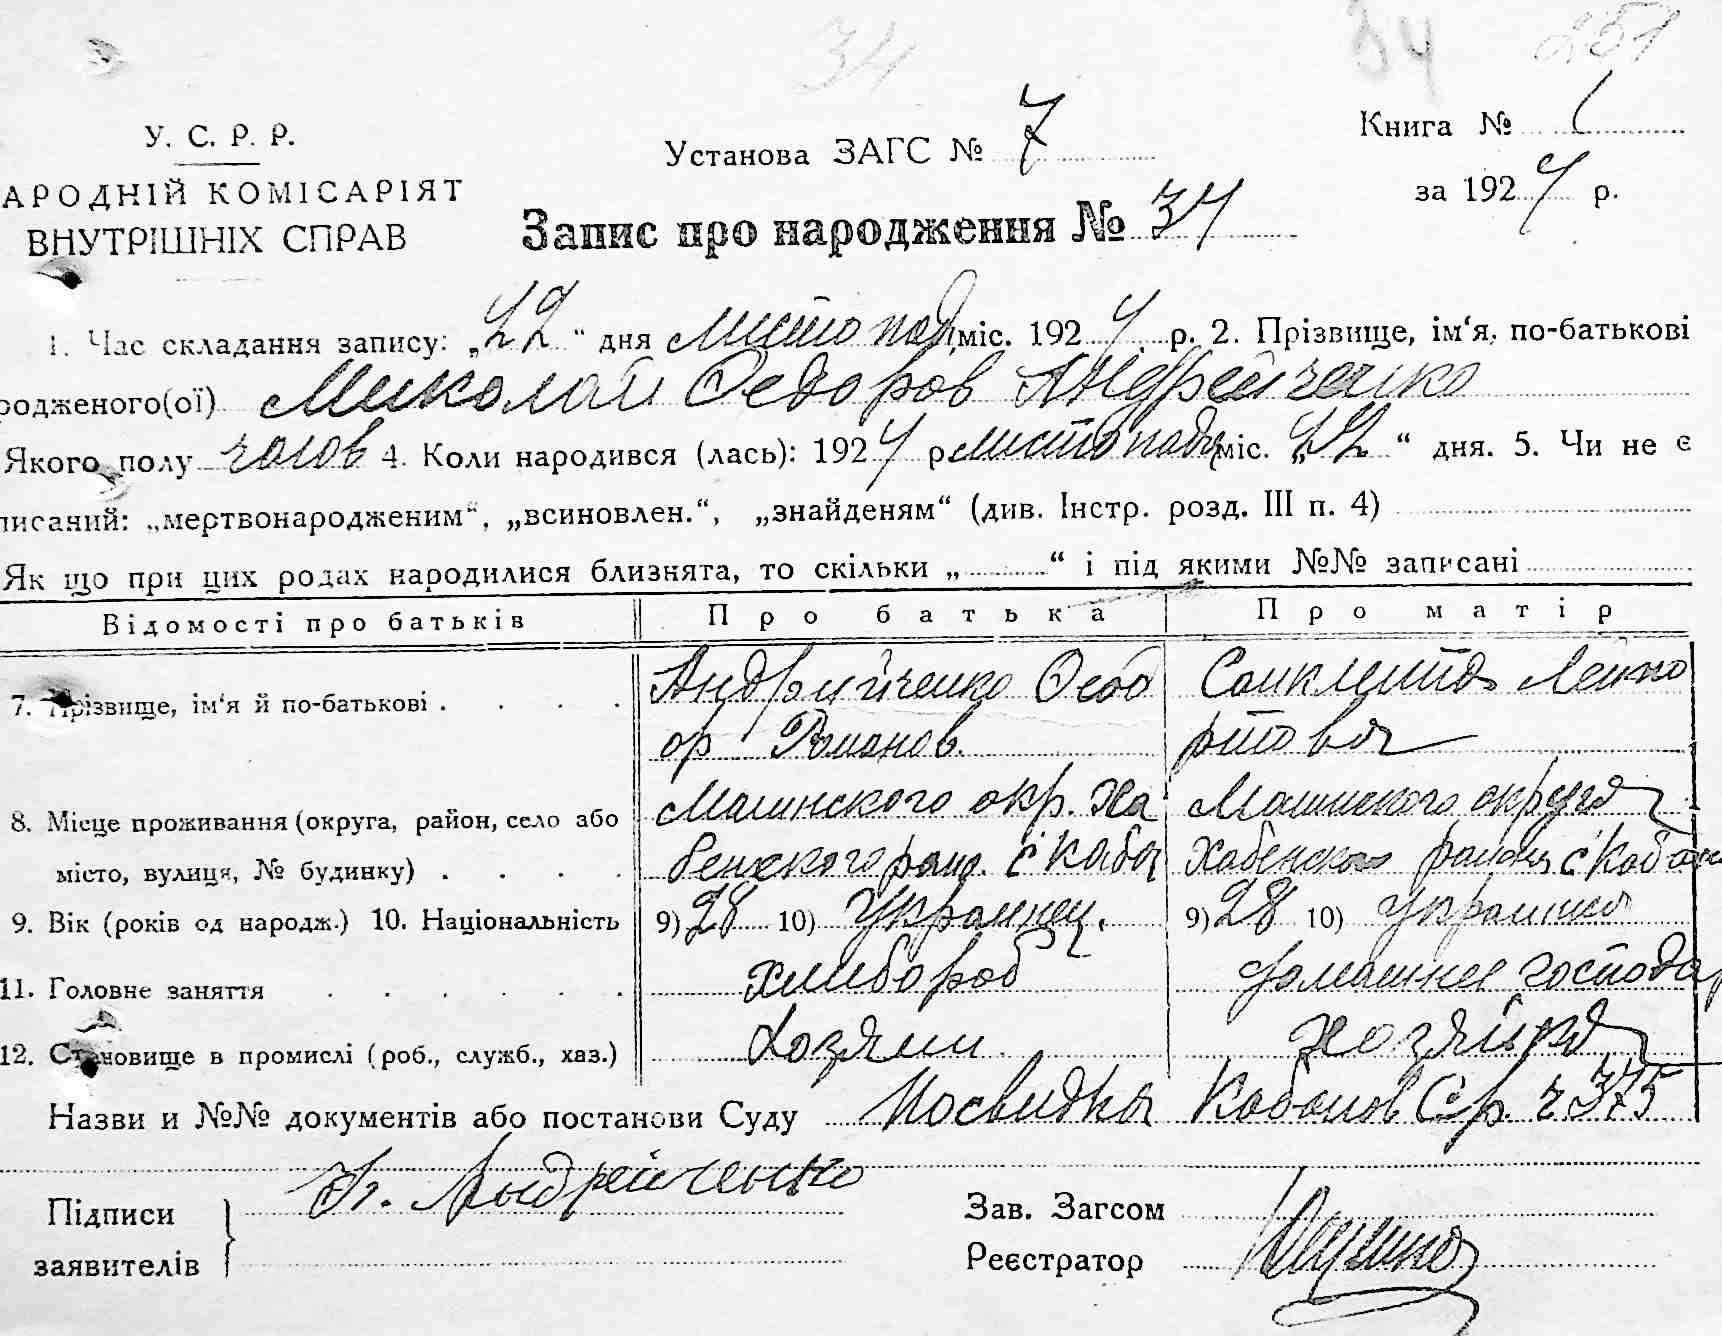 34 34 251
У. С. Р. Р.
АРОДНІЙ КОМІСАРІЯТ
ВНУТРІШНІХ СПРАВ
Установа ЗАГС № 7
Книга № 1
за 1924 р.
Запис про народження № 34
1. Час складання запису: „22“ дня листопад міс. 1924 р. 2. Прізвище, ім‘я, по-батькові
родженого(ої) Миколай Федоров Андрейченко
Якого полу чолов 4. Коли народився (лась): 1924 р листопада міс. „22“ дня. 5. Чи не є
писаний: „мертвонародженим“, „всиновлен.“, „знайденям“ (див. Інстр. розд. III п. 4)
Як що при цих родах народилися близнята, то скільки „ “ і під якими №№ записані
Відомості про батьків Про батька Про матір
7. Прізвище, ім‘я й по-батькові . . . . Андрийченко Фед
ор Романов. 
8. Місце проживання (округа, район, село або місто, вулиця, № будинку) . . . . Малинского окр. Ха
бенского раио. с Каба Малинского округа
Хабенского района с Кабан
9. Вік (років од народж.) 10. Національність 9) 28 10) Украинец. 9) 28 10) Украинка
11. Головне заняття . . . . . . хлибороб домашнее господар
12. Становище в промислі (роб., служб., хаз.) Хозяин хозяйка
Назви и №№ документів або постанови Суду Посвидка Кабанов С.р. ч 375
Підписи
заявителів Андрейченко
Зав. Загсом
Реєстратор